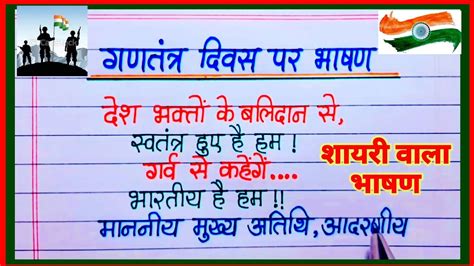 गणतंत्र दिवस पर भाषण
देश भक्तों के बलिदान से,
स्वतंत्र हुए है हम !
गर्व से कहेंगें....
भारतीय है हम !!
माननीय मुख्य अतिथि, आदरणीय
शायरी वाला
भाषण